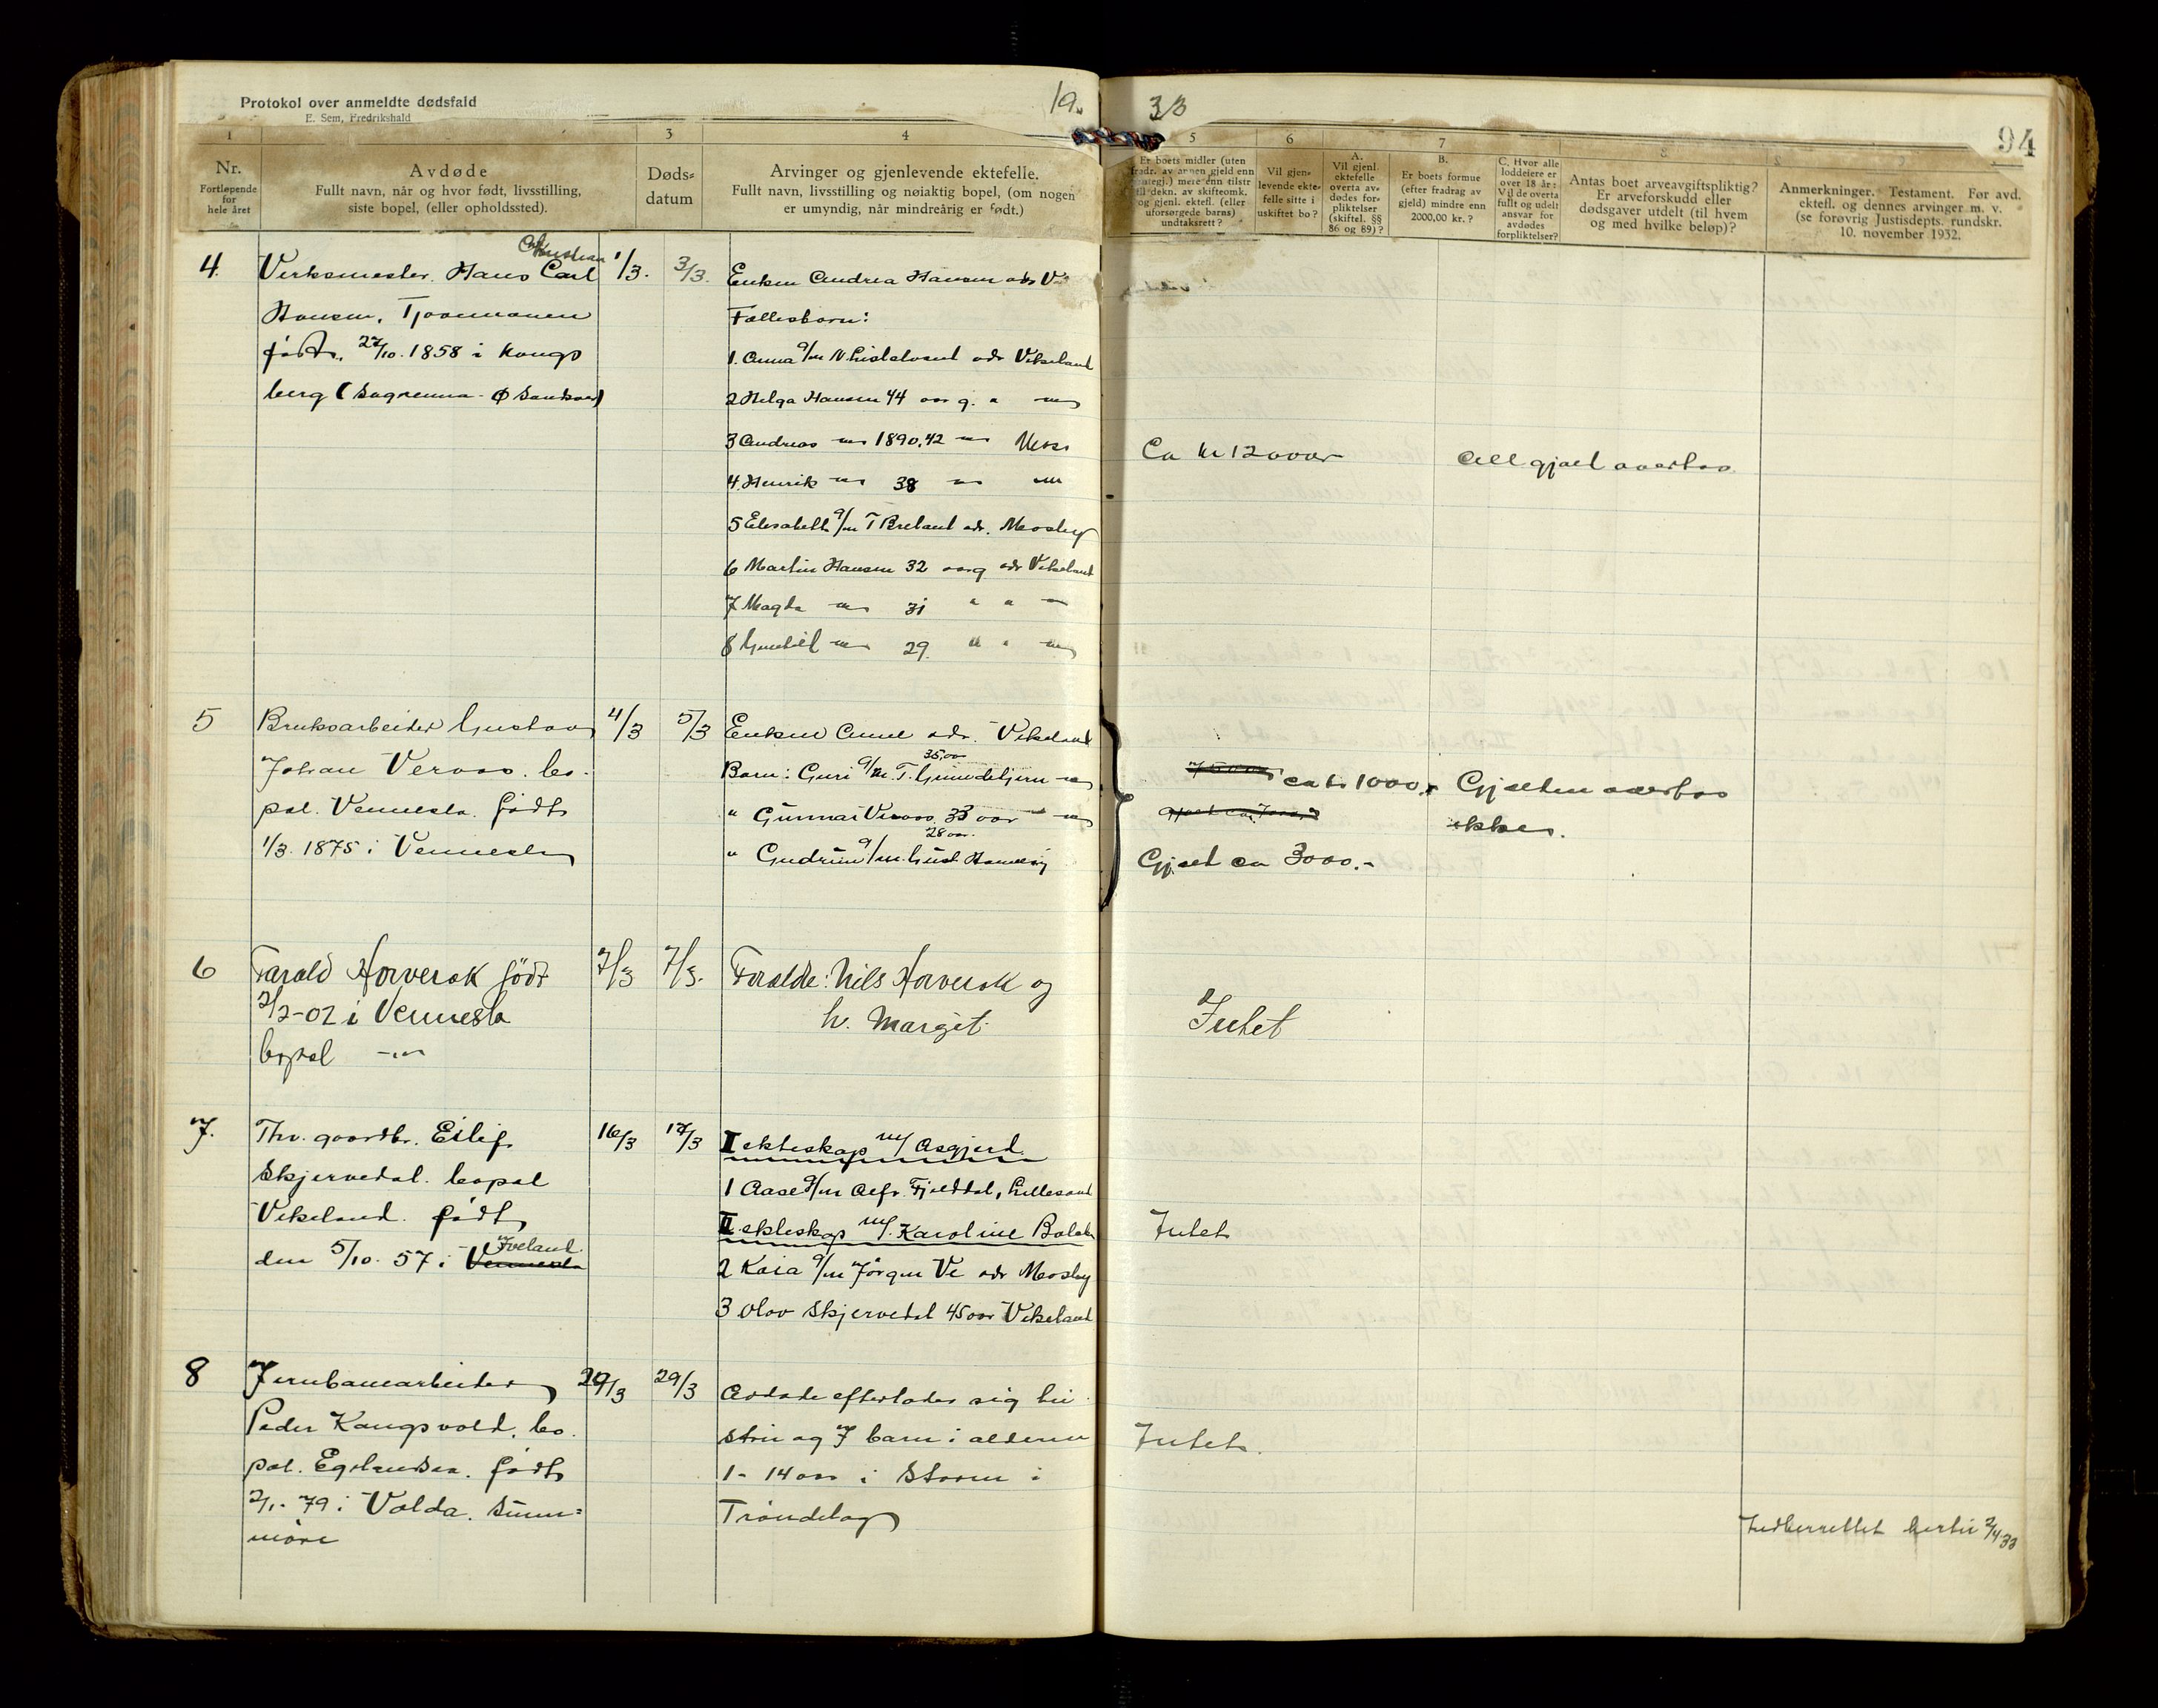 Protokol over anmeldte dødsfald
E. Sem, Fredrikshald
19.
33
94
1
3
4
5
6
7
8
Nr.
Fortløpende
for
hele året
Avdøde
Fullt navn, når og hvor født, livsstilling,
siste bopel, (eller opholdssted).
Døds-
datum
Arvinger og gjenlevende ektefelle.
Fullt navn, livsstilling og nøiaktig bopel, (om nogen
er umyndig, når mindreårig er født.)
Er boets midler (uten
fradr. av annen gjeld enn
) mere enn tilstr
til dekn. av skifteomk.
og gjenl. ektefl. (eller
uforsørgede barns)
undtaksrett?
Vil gjen-
levende ekte-
felle sitte i
uskiftet bo?
A.
Vil gjenl.
ektefelle
overta av-
dødes for-
pliktelser
(skiftel. §§
86 og 89)?
B.
Er boets formue
(efter fradrag av
gjeld) mindre enn
2000,00 kr.?
C. Hvor alle
loddeiere er
over 18 år:
Vil de overta
fullt og udelt
ansvar for
avdødes
forpliktelser?
Antas boet arveavgiftspliktig?
Er arveforskudd eller
dødsgaver utdelt (til hvem
og med hvilke beløp)?
Anmerkninger. Testament. Før avd.
ektefl. og dennes arvinger m. v.
(se forøvrig Justisdepts. rundskr.
10. november 1932.
4.
Christian
Verksmester. Hans Carl
Hansen,
født. 27/10. 1858 i Kongs
berg
1/3.
3/3.
Enken Andrea Hansen adr V
Fællesbarn:
1. Anna g/m N. adr Vikeland
2 Helga Hansen 44 aar g. " —"—
3 Andreas —"— 1890. 42 —"— Moss
4. Henrik —"— 38 —"— —"—
5 Elisabeth g/m T Breland adr. Mosby
6 Martin Hansen 32 aar g adr Vikeland
7 Magda —"— 31 " " —"—
8 Gunhil —"— 29. " " —"—
Ca kr 12000,-
All gjæld overtas
5
Bruksarbeider Gustav
Johan Veraas. bo-
pæl. Vennesla. født
1/3. 1875 i Vennesla
4/3
5/3
Enken Anne adr. Vikeland
35 aar
Barn: Guri g/m. T. Grundetjern —"—
" Gunnar Veraas. 33 aar —"—
28 aar.
" Gudrun g/m. Gust
ca kr 1000,-
Gjæld ca 3000.-
Gjælden overtas
ikke.
6
Tarald Horverak født
2/2-02 i Vennesla
bopæl —"—
7/3
7/3.
Foralde: Nils Horverak og
h. Margit.
Intet
7.
Thv. gaardbr. Eilif
Skjervedal. bopæl
Vikeland. født
Iveland.
den 5/10. 57 i Vennesla
16/3
17/3
I ekteskap m/ Asgjerd
1 Aase g/m Alfr. Fjelddal, Lillesand
II ekteskap m/. Karoline
2 Kaia g/m Jørgen Ve adr Mosby
3 Olav Skjervedal 45 aar Vikeland
Intet
8
Jernbanearbeider
Peder Kangsvold. bo-
pæl. født
2/1- 79 i Volda. Sunn=
møre
29/3
29/3
Avdøde efterlader sig hu
stru og 7 barn i alderen
1- 14 aar i Støren i
Trøndelag
Intet.
Indberettet hertil 2/4 33